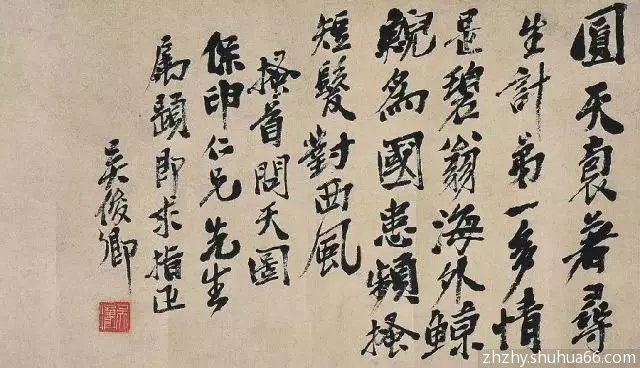 圓天裒著尋
生計弟一多情
是碧翁海外鯨
鯢為國患頻搔
短髮對西風
搔首問天圖
保印仁兄先生
屬題即求指正
吳俊卿
zhzhy.shuhua66.com